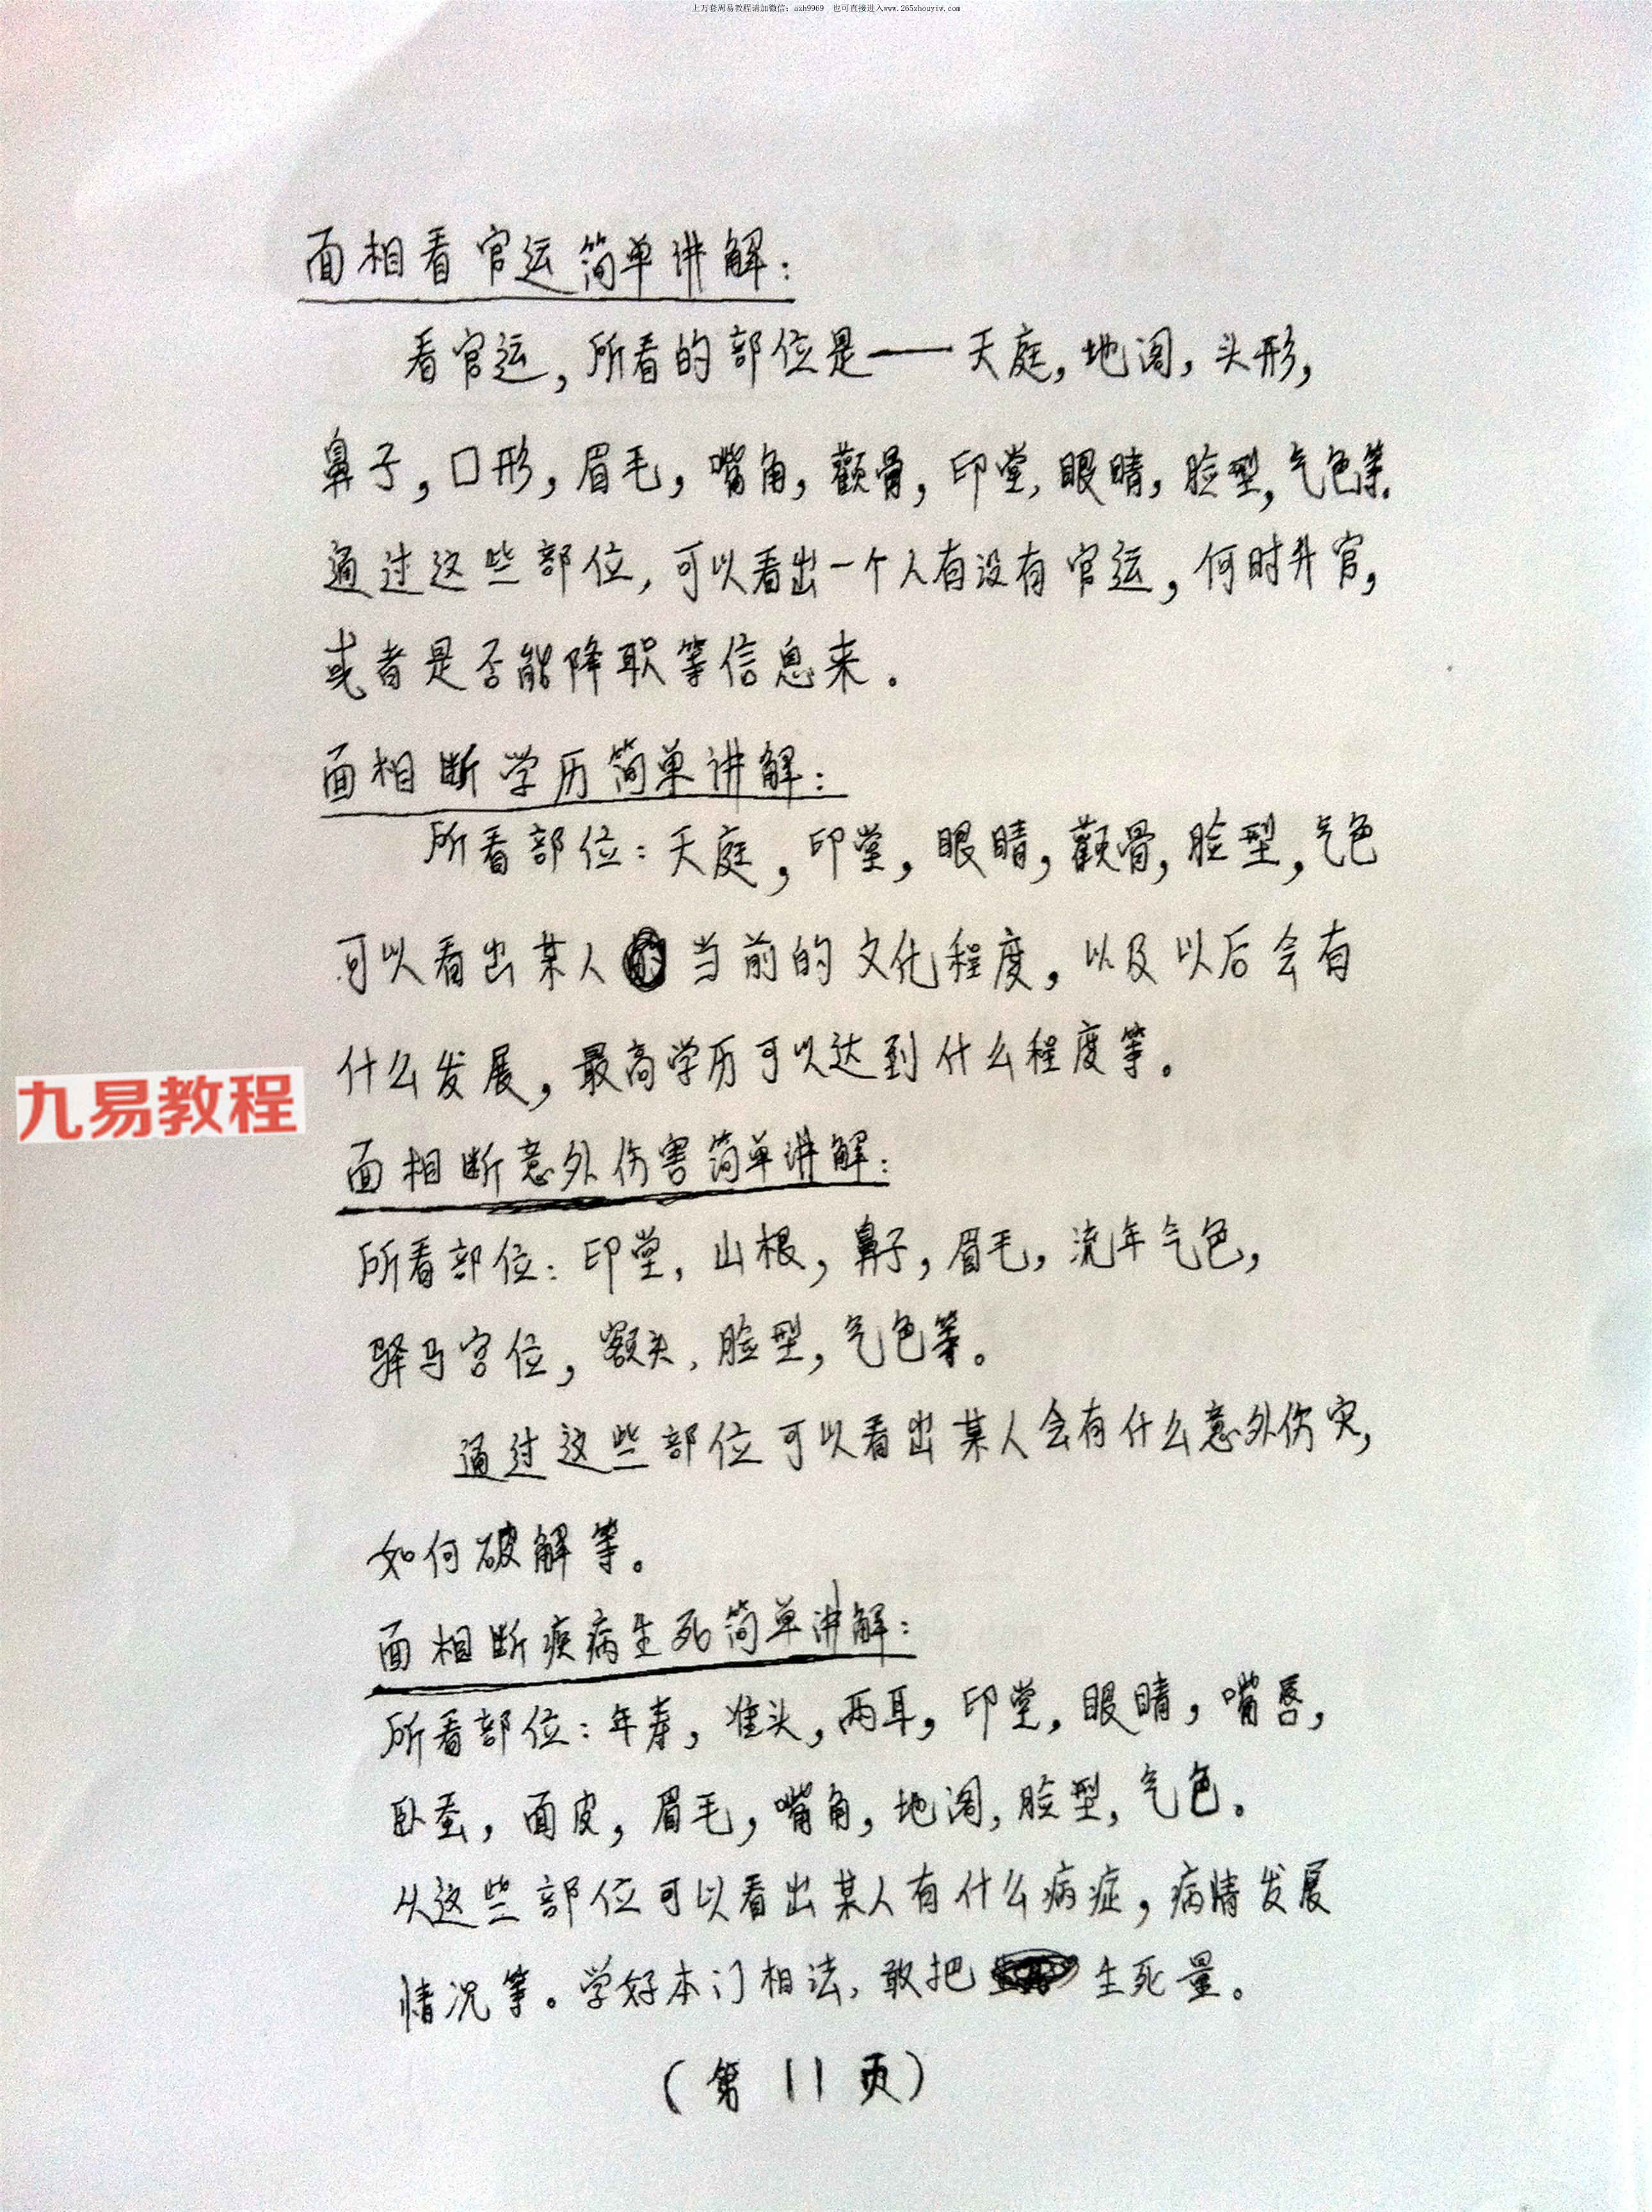 上万套周易教程请加微信：azh9969 也可直接进入www.265zhouyiw.com
面相看官运简单讲解：
看官运，所看的部位是——天庭，地阁，头形，
鼻子，口形，眉毛，嘴角，颧骨，印堂，眼睛，脸型，气色等.
通过这些部位，可以看出一个人有没有官运，何时升官，
或者是否能降职等信息来。
面相断学历简单讲解：
所看部位：天庭，印堂，眼睛，颧骨，脸型，气色
可以看出某人当前的文化程度，以及以后会有
什么发展，最高学历可以达到什么程度等。
九易教程
面相断意外伤害简单讲解：
所看部位：印堂，山根，鼻子，眉毛，流年气色，
驿马宫位，额头，脸型，气色等。
通过这些部位可以看出某人会有什么意外伤灾，
如何破解等。
面相断疾病生死简单讲解：
所看部位：年寿，准头，两耳，印堂，眼睛，嘴唇，
卧蚕，面皮，眉毛，嘴角，地阁，脸型，气色。
从这些部位可以看出某人有什么病症，病情发展
情况等。学好本门相法，敢把生死量。
（第11页）